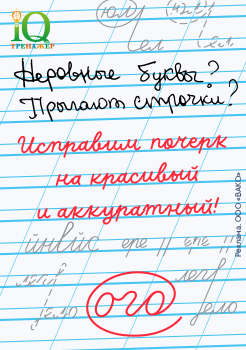 iQ
ТРЕНАЖЕР
Неровные буквы?
Прыгают строчки?
Исправим почерк
на красивый
и аккуратный!
ого
Реклама. ООО «ВАКО»